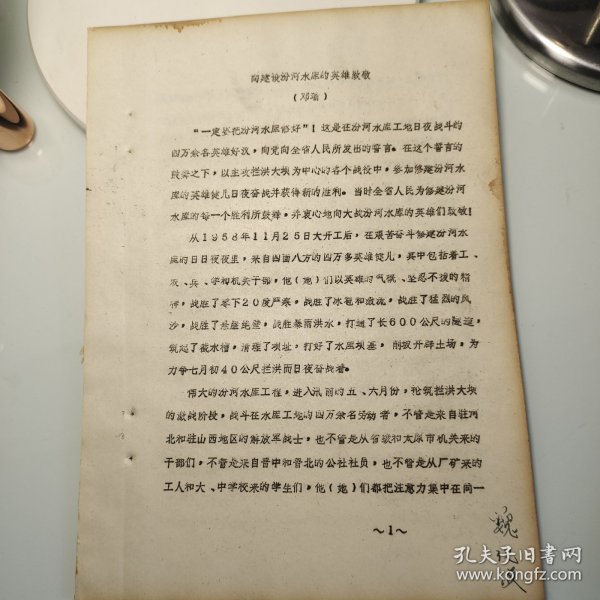 向建设汾河水库的英雄致敬
(邓瑜)
“一定要把汾河水库修好”！这是在汾河水库工地日夜战斗的
四万余名英雄好汉，向党向全省人民所发出的誓言。在这个誓言的
鼓舞之下，以主攻拦洪大坝为中心的各个战役中，参加修建汾河水
库的英雄健儿日夜奋战并获得新的胜利。当时全省人民为修建汾河
水库的每一个胜利所鼓舞，并衷心地向大战汾河水库的英雄们致敬！
从1958年11月25日大开工后，在艰苦奋斗修建汾河水
库的日日夜夜里，来自四面八方的四万多英雄健儿，其中包括着工、
农、兵、学和机关干部，他(她)们以英雄的气慨、坚忍不拔的精
神，战胜了零下20度严寒，战胜了冰雹和激流，战胜了猛烈的风
沙，战胜了悬崖绝壁，战胜暴雨洪水，打通了长600公尺的隧道，
筑起了截水槽，清理了坝址，打好了水库坝基，削彼开辟土场，为
力争七月初40公尺拦洪而日夜奋战着。
伟大的汾河水库工程，进入汛前的五、六月份，抢筑拦洪大坝
的激战阶段，战斗在水库工地的四万余名劳动者，不管是来自驻河
北和驻山西地区的解放军战士，也不管是从省级和太原市机关来的
干部们，不管是来自晋中和晋北的公社社员，也不管是从厂矿来的
工人和大、中学校来的学生们，他(她)们都把注意力集中在同一
～1～
魏
孔夫子旧书网
www.kongfz.com